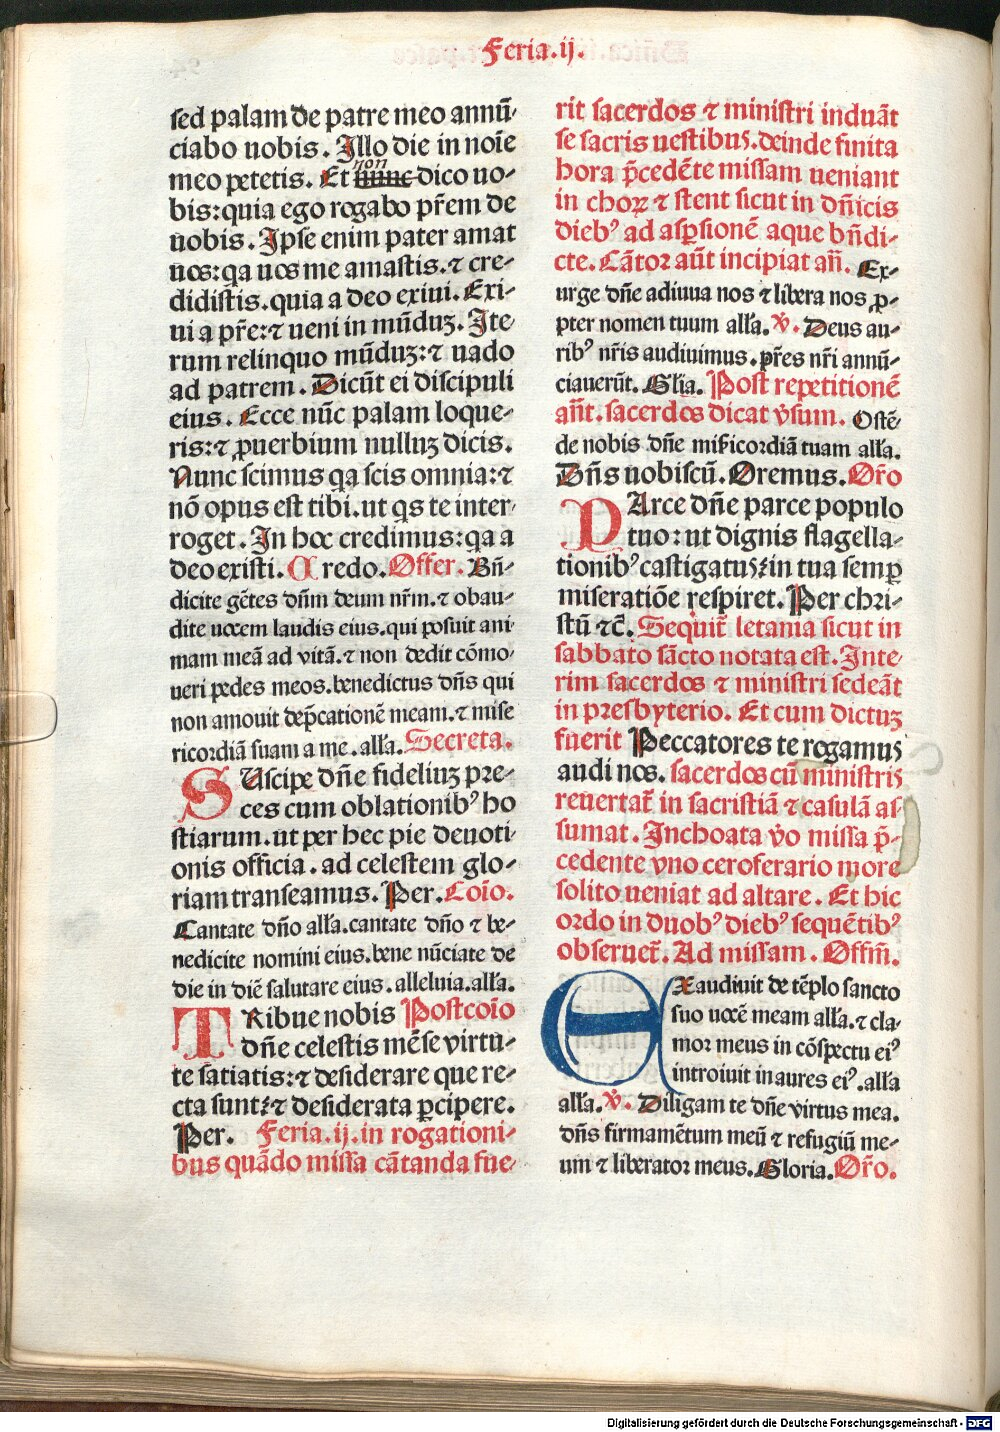 Feria.ij.
sed palam de patre meo annū-
ciabo uobis. Illo die in noīe
non
meo petetis. Et nunc dico uo-
bis: quia ego rogabo p̄rem de
uobis. Ipse enim pater amat
uos: qa uos me amastis. ⁊ cre-
didistis. quia a deo exiui. Exi-
ui a p̄re: ⁊ ueni in mūduꝫ. Ite-
rum relinquo mūduꝫ: ⁊ uado
ad patrem. Dicūt ei discipuli
eius. Ecce nūc palam loque-
ris: ⁊ ꝓuerbium nulluꝫ dicis.
Nunc scimus qa scis omnia: ⁊
nō opus est tibi. ut qs te inter-
roget. In hoc credimus: qa a
deo existi. Credo. Offer. Bn̄-
dicite gētes dn̄m deum nr̄m. ⁊ obau-
dite uocem laudis eius. qui posuit ani
mam meā ad vitā. ⁊ non dedit cōmo-
ueri pedes meos. benedictus dn̄s qui
non amouit dep̄cationē meam. ⁊ mise
ricordiā suam a me. alla. Secreta.
SUscipe dn̄e fideliuꝫ pre-
ces cum oblationibꝰ ho
stiarum. ut per hec pie deuoti-
onis officia. ad celestem glo-
riam transeamus. Per. Coīo.
Cantate dn̄o alla. cantate dn̄o ⁊ be-
nedicite nomini eius. bene nūciate de
die in diē salutare eius. alleluia. alla.
TRibue nobis Postcoīo
dn̄e celestis mēse virtu-
te satiatis: ⁊ desiderare que re-
cta sunt: ⁊ desiderata ꝑcipere.
Per. Feria. ij. in rogationi-
bus quādo missa cātanda fue-
rit sacerdos ⁊ ministri induāt
se sacris uestibus. deinde finita
hora p̄cedēte missam ueniant
in choꝝ ⁊ stent sicut in dn̄icis
diebꝰ ad asꝑsionē aque bn̄di-
cte. Cātor aūt incipiat an̄. Ex-
urge dn̄e adiuua nos ⁊ libera nos ꝓ-
pter nomen tuum alla. v̄. Deus au-
ribꝰ nr̄is audiuimus. p̄res nr̄i annū-
ciauerūt. Gl̄ia. Post repetitionē
an̄t. sacerdos dicat v̄sum. Ostē-
de nobis dn̄e misericordiā tuam alla.
Dn̄s uobiscū. Oremus. Or̄o
PArce dn̄e parce populo
tuo: ut dignis flagella-
tionibꝰ castigatus: in tua semꝑ
miseratiōe respiret. Per chri-
stū ⁊c̄. Sequit̄ letania sicut in
sabbato sācto notata est. Inte-
rim sacerdos ⁊ ministri sedeāt
in presbyterio. Et cum dictuꝫ
fuerit Peccatores te rogamus
audi nos. sacerdos cū ministris
reuertāt in sacristiā ⁊ casulā as
sumat. Inchoata v̄o missa p̄-
cedente vno ceroferario more
solito ueniat ad altare. Et hic
ordo in duobꝰ diebꝰ sequētibꝰ
obseruet̄. Ad missam. Offm̄.
EXaudiuit de tēplo sancto
suo uocē meam alla. ⁊ cla-
mor meus in cōspectu eiꝰ
introiuit in aures eiꝰ. alla
alla. v̄. Diligam te dn̄e virtus mea.
dn̄s firmamētum meū ⁊ refugiū me-
um ⁊ liberator meus. Gloria. Or̄o.
Digitalisierung gefördert durch die Deutsche Forschungsgemeinschaft - DFG